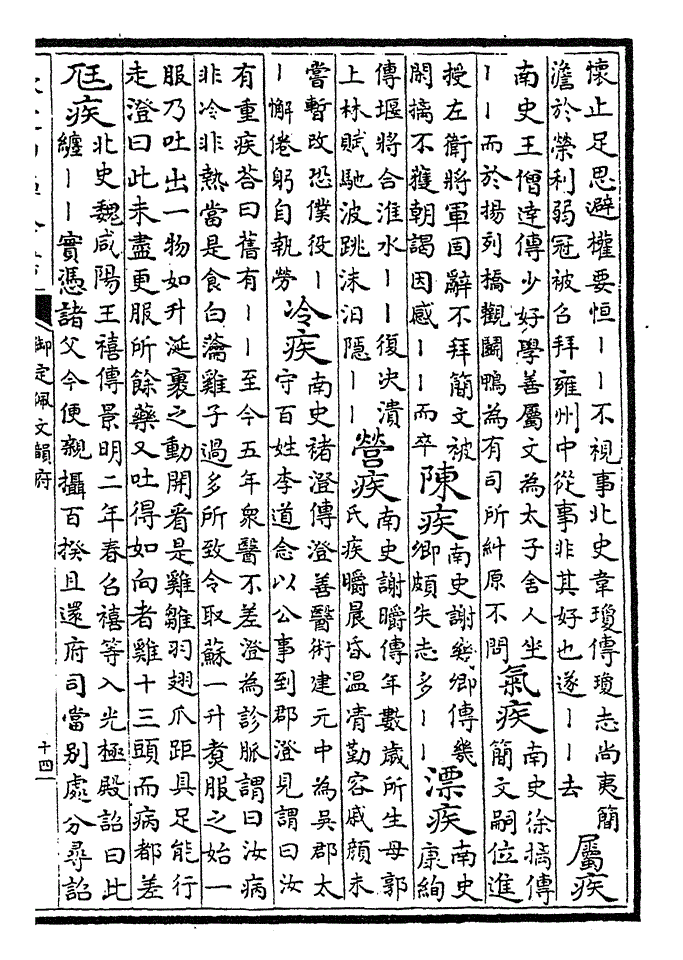 懷止足思避權要恒丨丨不視事北史韋瓊傳瓊志尚夷簡
澹於榮利弱冠被召拜雍州中從事非其好也遂丨丨去
屬疾
南史王僧逹傳少好學善屬文為太子舍人坐
丨丨而於揚列橋觀鬭鴨為有司所糾原不問
氣疾
南史徐摛傳
簡文嗣位進
授左衛將軍固辭不拜簡文被
閉摛不獲朝謁因感丨丨而卒
陳疾
南史謝幾卿傳幾
卿頗失志多丨丨
漂疾
南史
康絢
傳堰將合淮水丨丨復决潰
上林賦馳波跳沫汨隱丨丨
營疾
南史謝㬭傳年數歲所生母郭
氏疾㬭晨昏温凊勤容戚顔未
嘗暫改恐僕役丨
丨懈倦躬自執勞
冷疾
南史禇澄傳澄善醫術建元中為吳郡太
守百姓李道念以公事到郡澄見謂曰汝
有重疾荅曰舊有丨丨至今五年衆醫不差澄為診脈謂曰汝病
非冷非熱當是食白瀹雞子過多所致令取蘇一升煑服之始一
服乃吐出一物如升涎裹之動開看是雞雛羽翅爪距具足能行
走澄曰此未盡更服所餘藥又吐得如向者雞十三頭而病都差
尫疾
北史魏咸陽王禧傳景明二年春召禧等入光極殿詔曰此
纏丨丨實憑諸父今便親攝百揆且還府司當别處分尋詔
御定佩文韻府
十四